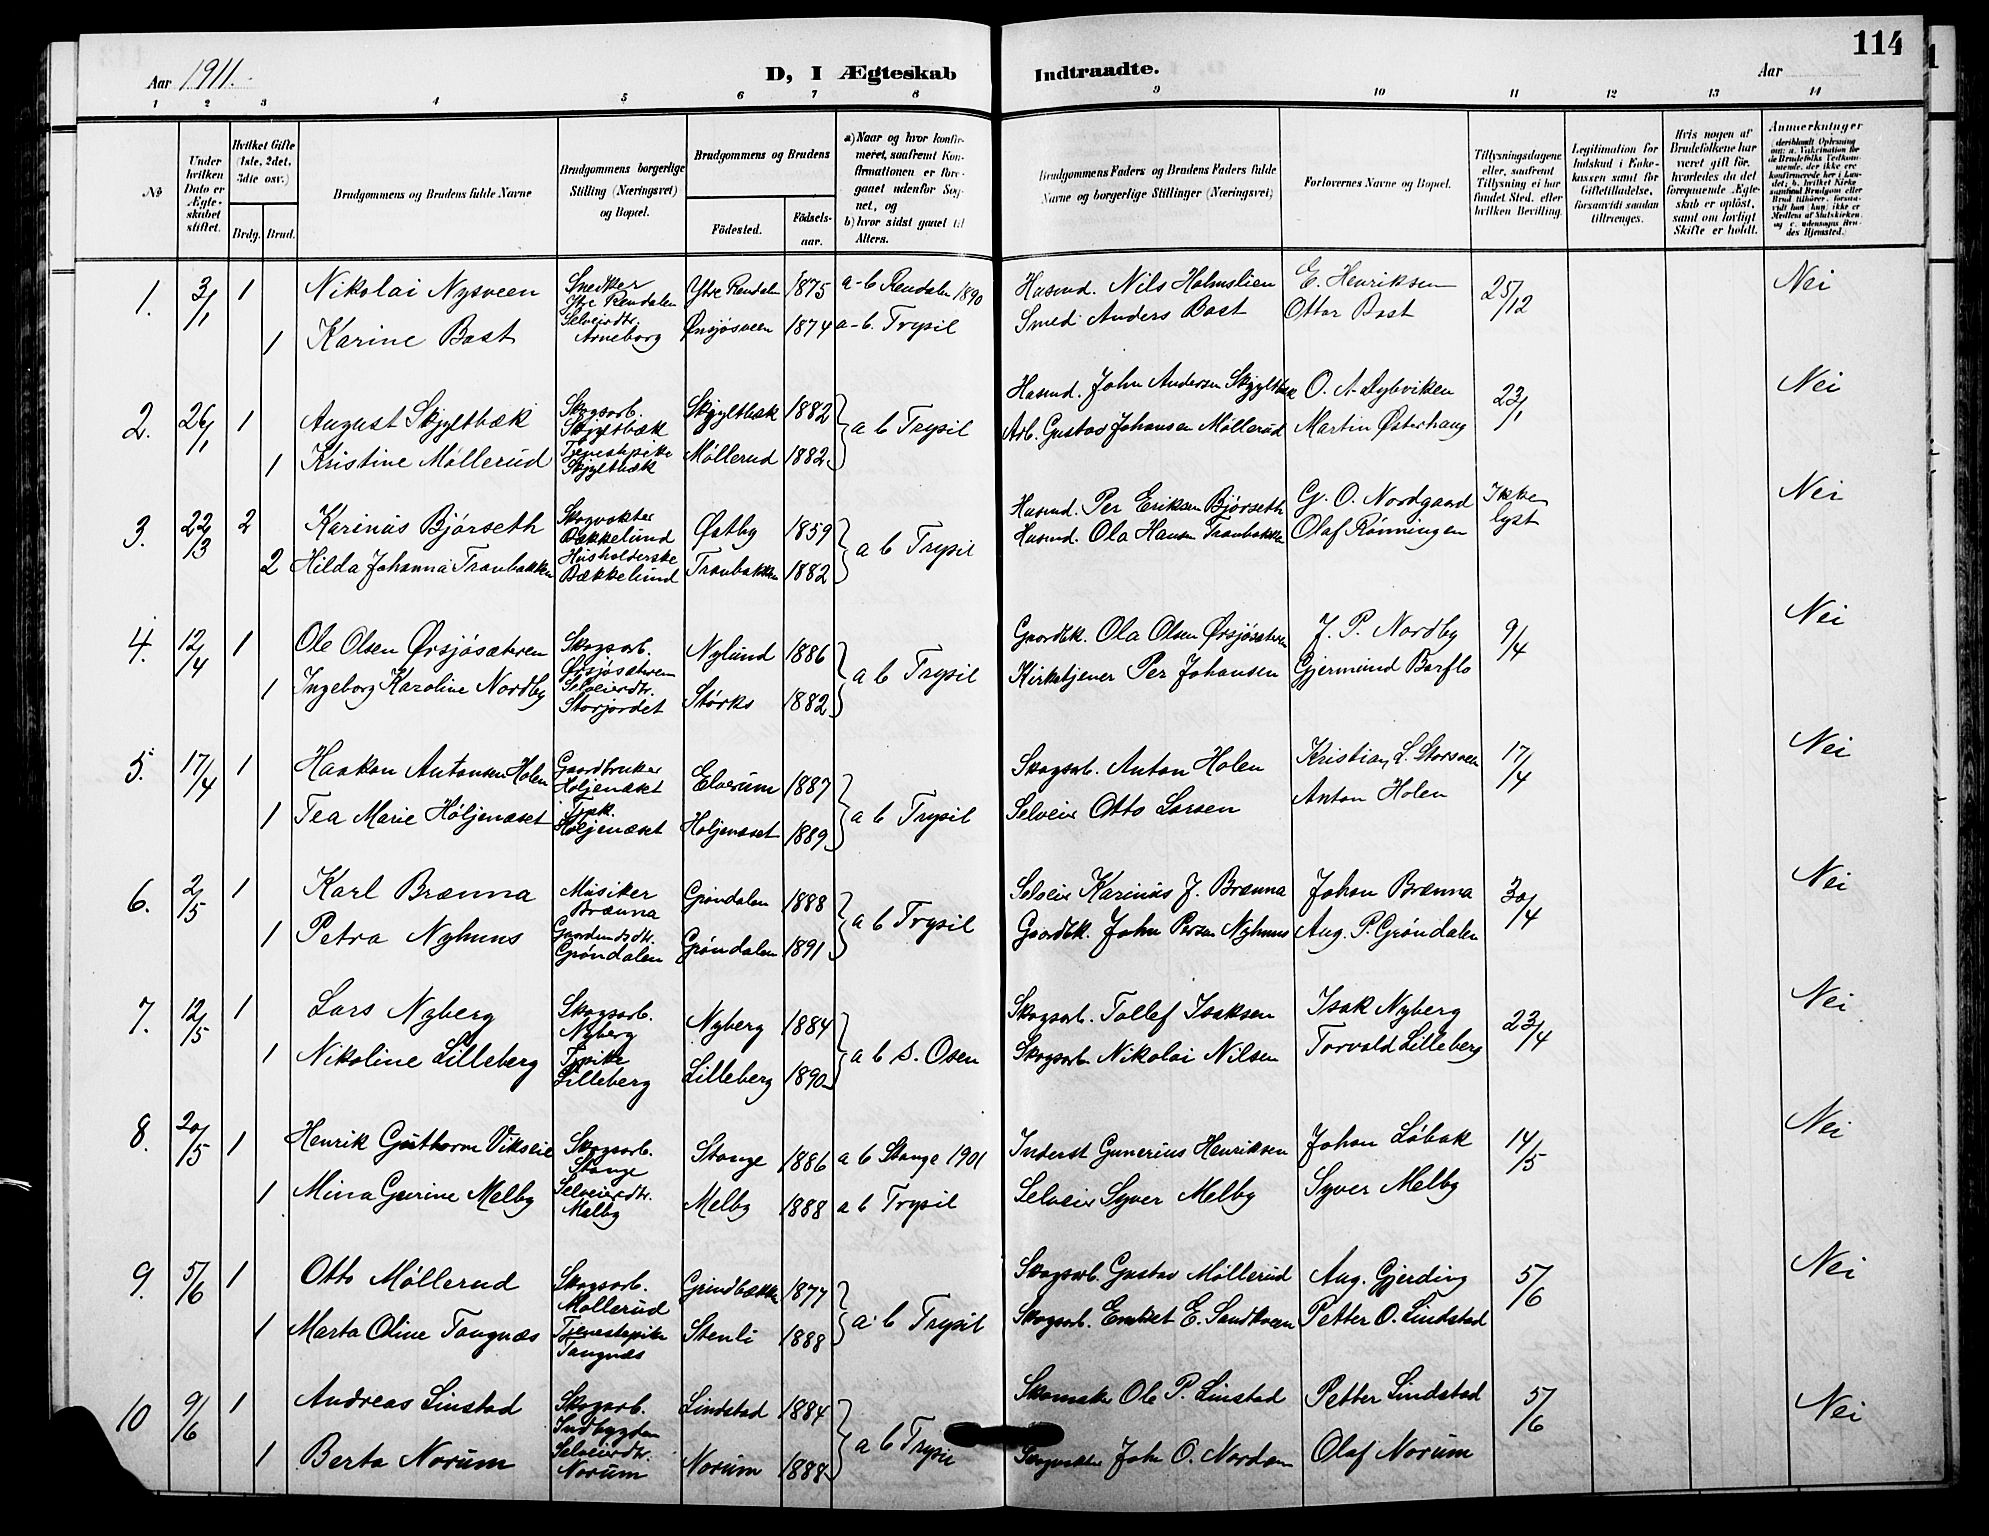 114
Aar 1911.
D, I Ægteskab
Indtraadte.
Aar
1 2 3 4 5 6 7 8 9 10 11 12 13 14
No
Under hvilken Dato er Ægteskabet stiftet.
Hvilket Gifte (1ste, 2det, 3die osv.)
Brdg. Brud.
Brudgommens og Brudens fulde Navne
Brudgommens borgerlige Stilling (Næringsvei) og Bopæl.
Brudgommens og Brudens
Födested.
Födsels-aar.
a) Naar og hvor konfirmeret, saafremt Konfirmationen er foregaaet udenfor Sognet, og
b) hvor sidst gaaet til Alters.
Brudgommens Faders og Brudens Faders fulde Navne og borgerlige Stillinger (Næringsvei)
Forlovernes Navne og Bopæl.
Tillysningsdagene eller, saafremt Tillysning ei har fundet Sted, efter hvilken Bevilling.
Legitimation for Indskud i Enkekassen samt for Giftetilladelse, forsaavidt saadan tiltrænges.
Hvis nogen af Brudefolkene har været gift før, hvorledes da det foregaaende Ægteskab er oplöst, samt om lovligt Skifte er holdt.
Anmerkninger
1. 3/1 1 Nikolai Nysveen Snedker Ytre Rendalen Ytre Rendalen 1875 a-b Rendalen 1890 Husmd. Nils Holmslien E. Henriksen 25/12 Nei
1 Karine Bast Selveierdtr. Arneborg Ørsjøsveen 1874 a-b. Trysil Smed Anders Bast Ottar Bast
2. 26/1 1 August Skjyltbæk Skogsarb. Skjyltbæk Skjyltbæk 1882 a b Trysil Husmd. John Andersen Skjyltbæk O. A. Nybviken 23/1 Nei
1 Kristine Møllerud Tjenestepike Skjyltbæk Møllerud 1882 Arb. Gustav Johansen Møllerud Martin Østerhaug
3. 22/3 2 Karinus Bjørseth Skogvokter Bækkelund Østby 1859 a b Trysil Husmd. Per Eriksen Bjørseth G. O. Nordgaard Ikke lyst Nei
2 Hilda Johanna Tranbakken Husholderske Bækkelund Tranbakken 1882 Husmd. Ola Hansen Tranbakken Olaf Rønningen
4. 12/4 1 Ole Olsen Ørsjøsæteren Skogsarb. Ørsjøsæteren Nylund 1886 a b Trysil Gaardbk. Ola Olsen Ørsjøsæteren J. P. Nordby 9/4 Nei
1 Ingeborg Karoline Nordby Selveierdtr. Storjordet Størks 1882 Kirketjener Per Johansen Gjermund Borflo
5. 17/4 1 Haakon Antonsen Holen Gaardbruker Høljenæset Elverum 1887 a b Trysil Skogsarb. Anton Holen Kristian L. Storsveen 17/4 Nei
1 Tea Marie Høljenæset Høljenæset Høljenæset 1889 Selveier Otto Larsen Anton Holen
6. 2/5 1 Karl Brænna Musiker Brænna Grøndalen 1888 a b Trysil Selveier Karinus J. Brænna Johan Brænna 30/4 Nei
1 Petra Nyhuus Gaardmdsdtr. Grøndalen Grøndalen 1891 Gaardbk. John Persen Nyhuus Aug. P. Grøndalen
7. 12/5 1 Lars Nyberg Skogsarb. Nyberg Nyberg 1884 a b S. Osen Skogsarb. Tollef Isaksen Isak Nyberg 23/4 Nei
1 Nikoline Lilleberg Tj.pike Lilleberg Lilleberg 1890 Skogsarb. Nikolai Nilsen Torvald Lilleberg
8. 20/5 1 Henrik Guthorm Vikseie Skogsarb. Stange Stange 1886 a b Stange 1901 Inderst Gunerius Henriksen Johan Løbak 14/5 Nei
1 Mina Gurine Melby Selveierdtr. Melby Melby 1888 a b Trysil Selveier Syver Melby Syver Melby
9. 5/6 1 Otto Møllerud Skogsarb. Møllerud Grindbække 1877 a b Trysil Skogsarb. Gustav Møllerud Aug. Gjerding 5/6 Nei
1 Marta Oline Tangnæs Tjenestepike Tangnæs Stenli 1888 Skogsarb. Embret E. Sandkveen Petter O. Lindstad
10 9/6 1 Andreas Linstad Skogsarb. Indbygden Lindstad 1884 a b Trysil Skomaker Ole P. Linstad Petter Lindstad 5/6 Nei
1 Berta Norum Selveierdtr. Norum Norum 1888 Skogvokter John O. Nordam Olaf Norum